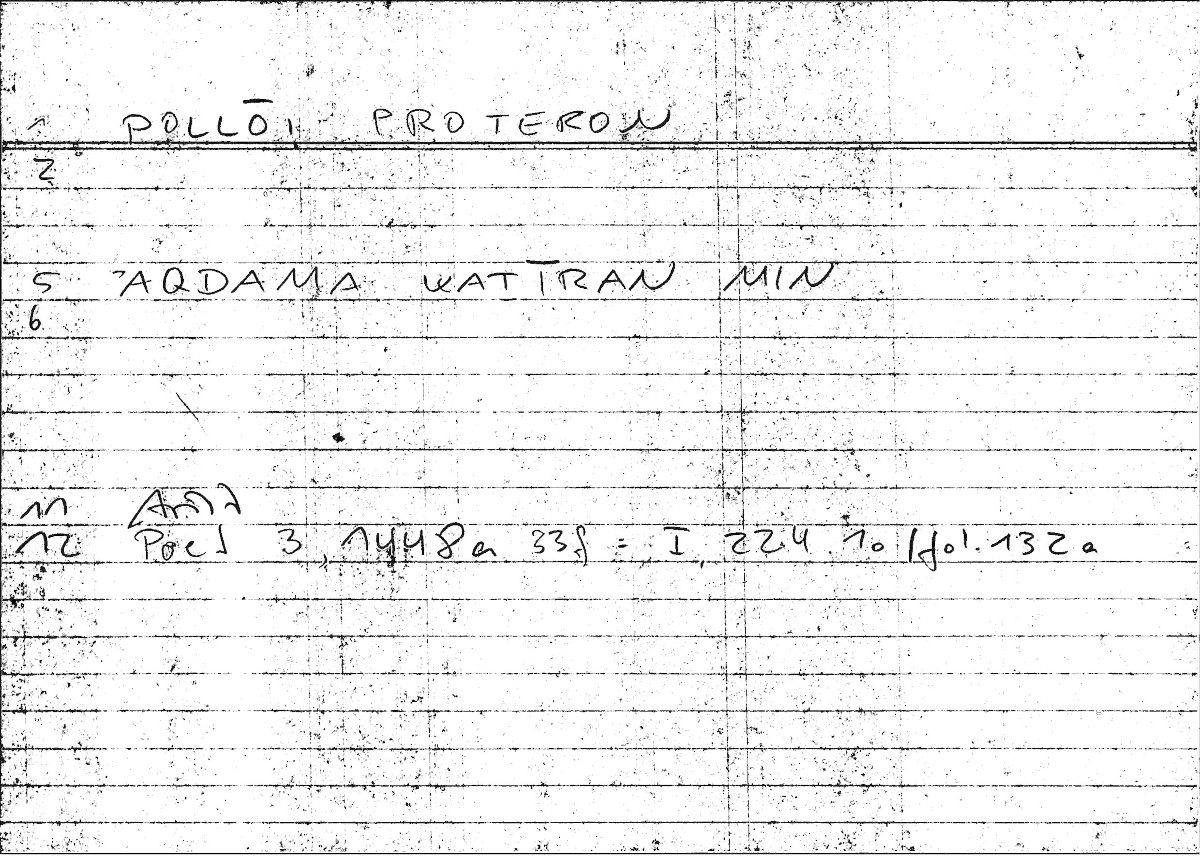 1 POLLŌI PROTERON
2
5 ʾAQDAMA KATĪRAN MIN
6
11
12 Poet 3, 1448a 33f = I, 224 10 / fol. 132a